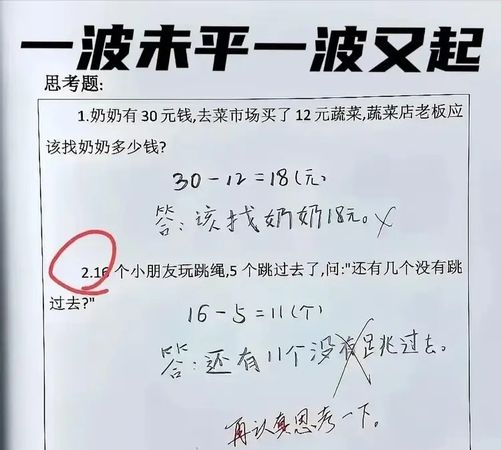 一波未平一波又起
思考题:
1.奶奶有 30 元钱,去菜市场买了 12 元蔬菜,蔬菜店老板应
该找奶奶多少钱?
30-12=18(元)
答:该找奶奶18元。
2.16 个小朋友玩跳绳,5 个跳过去了,问:"还有几个没有跳
过去?"
16-5=11(个)
答:还有11个没有跳过去。
再认真思考一下。